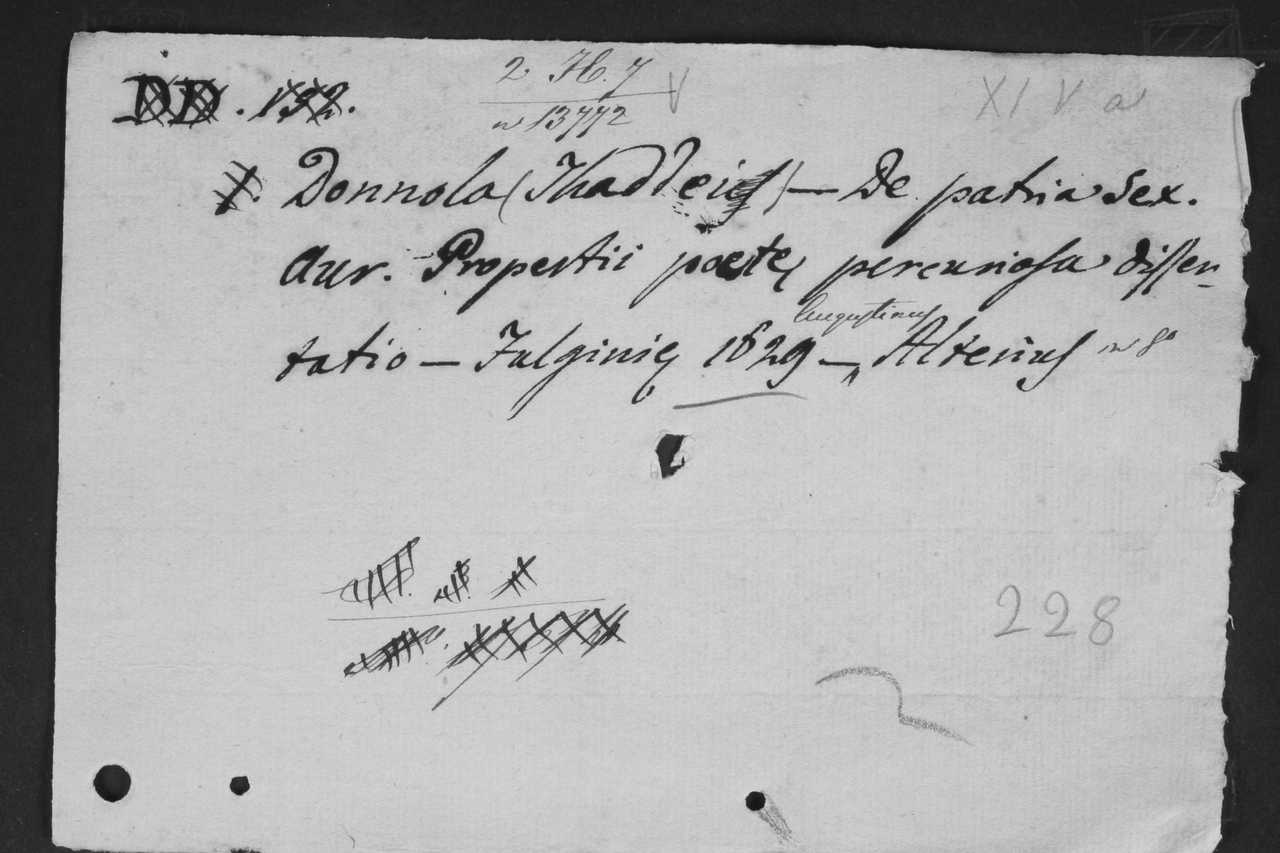 DD. 192.
2 H. 7
w 13772
V
XI V a
Donnola (Thaddeus) — De patria Sex.
Aur. Propertii poetę percuriosa disser-
tatio — Fulginię 1629 — Augustinus Alterius in 8º
228